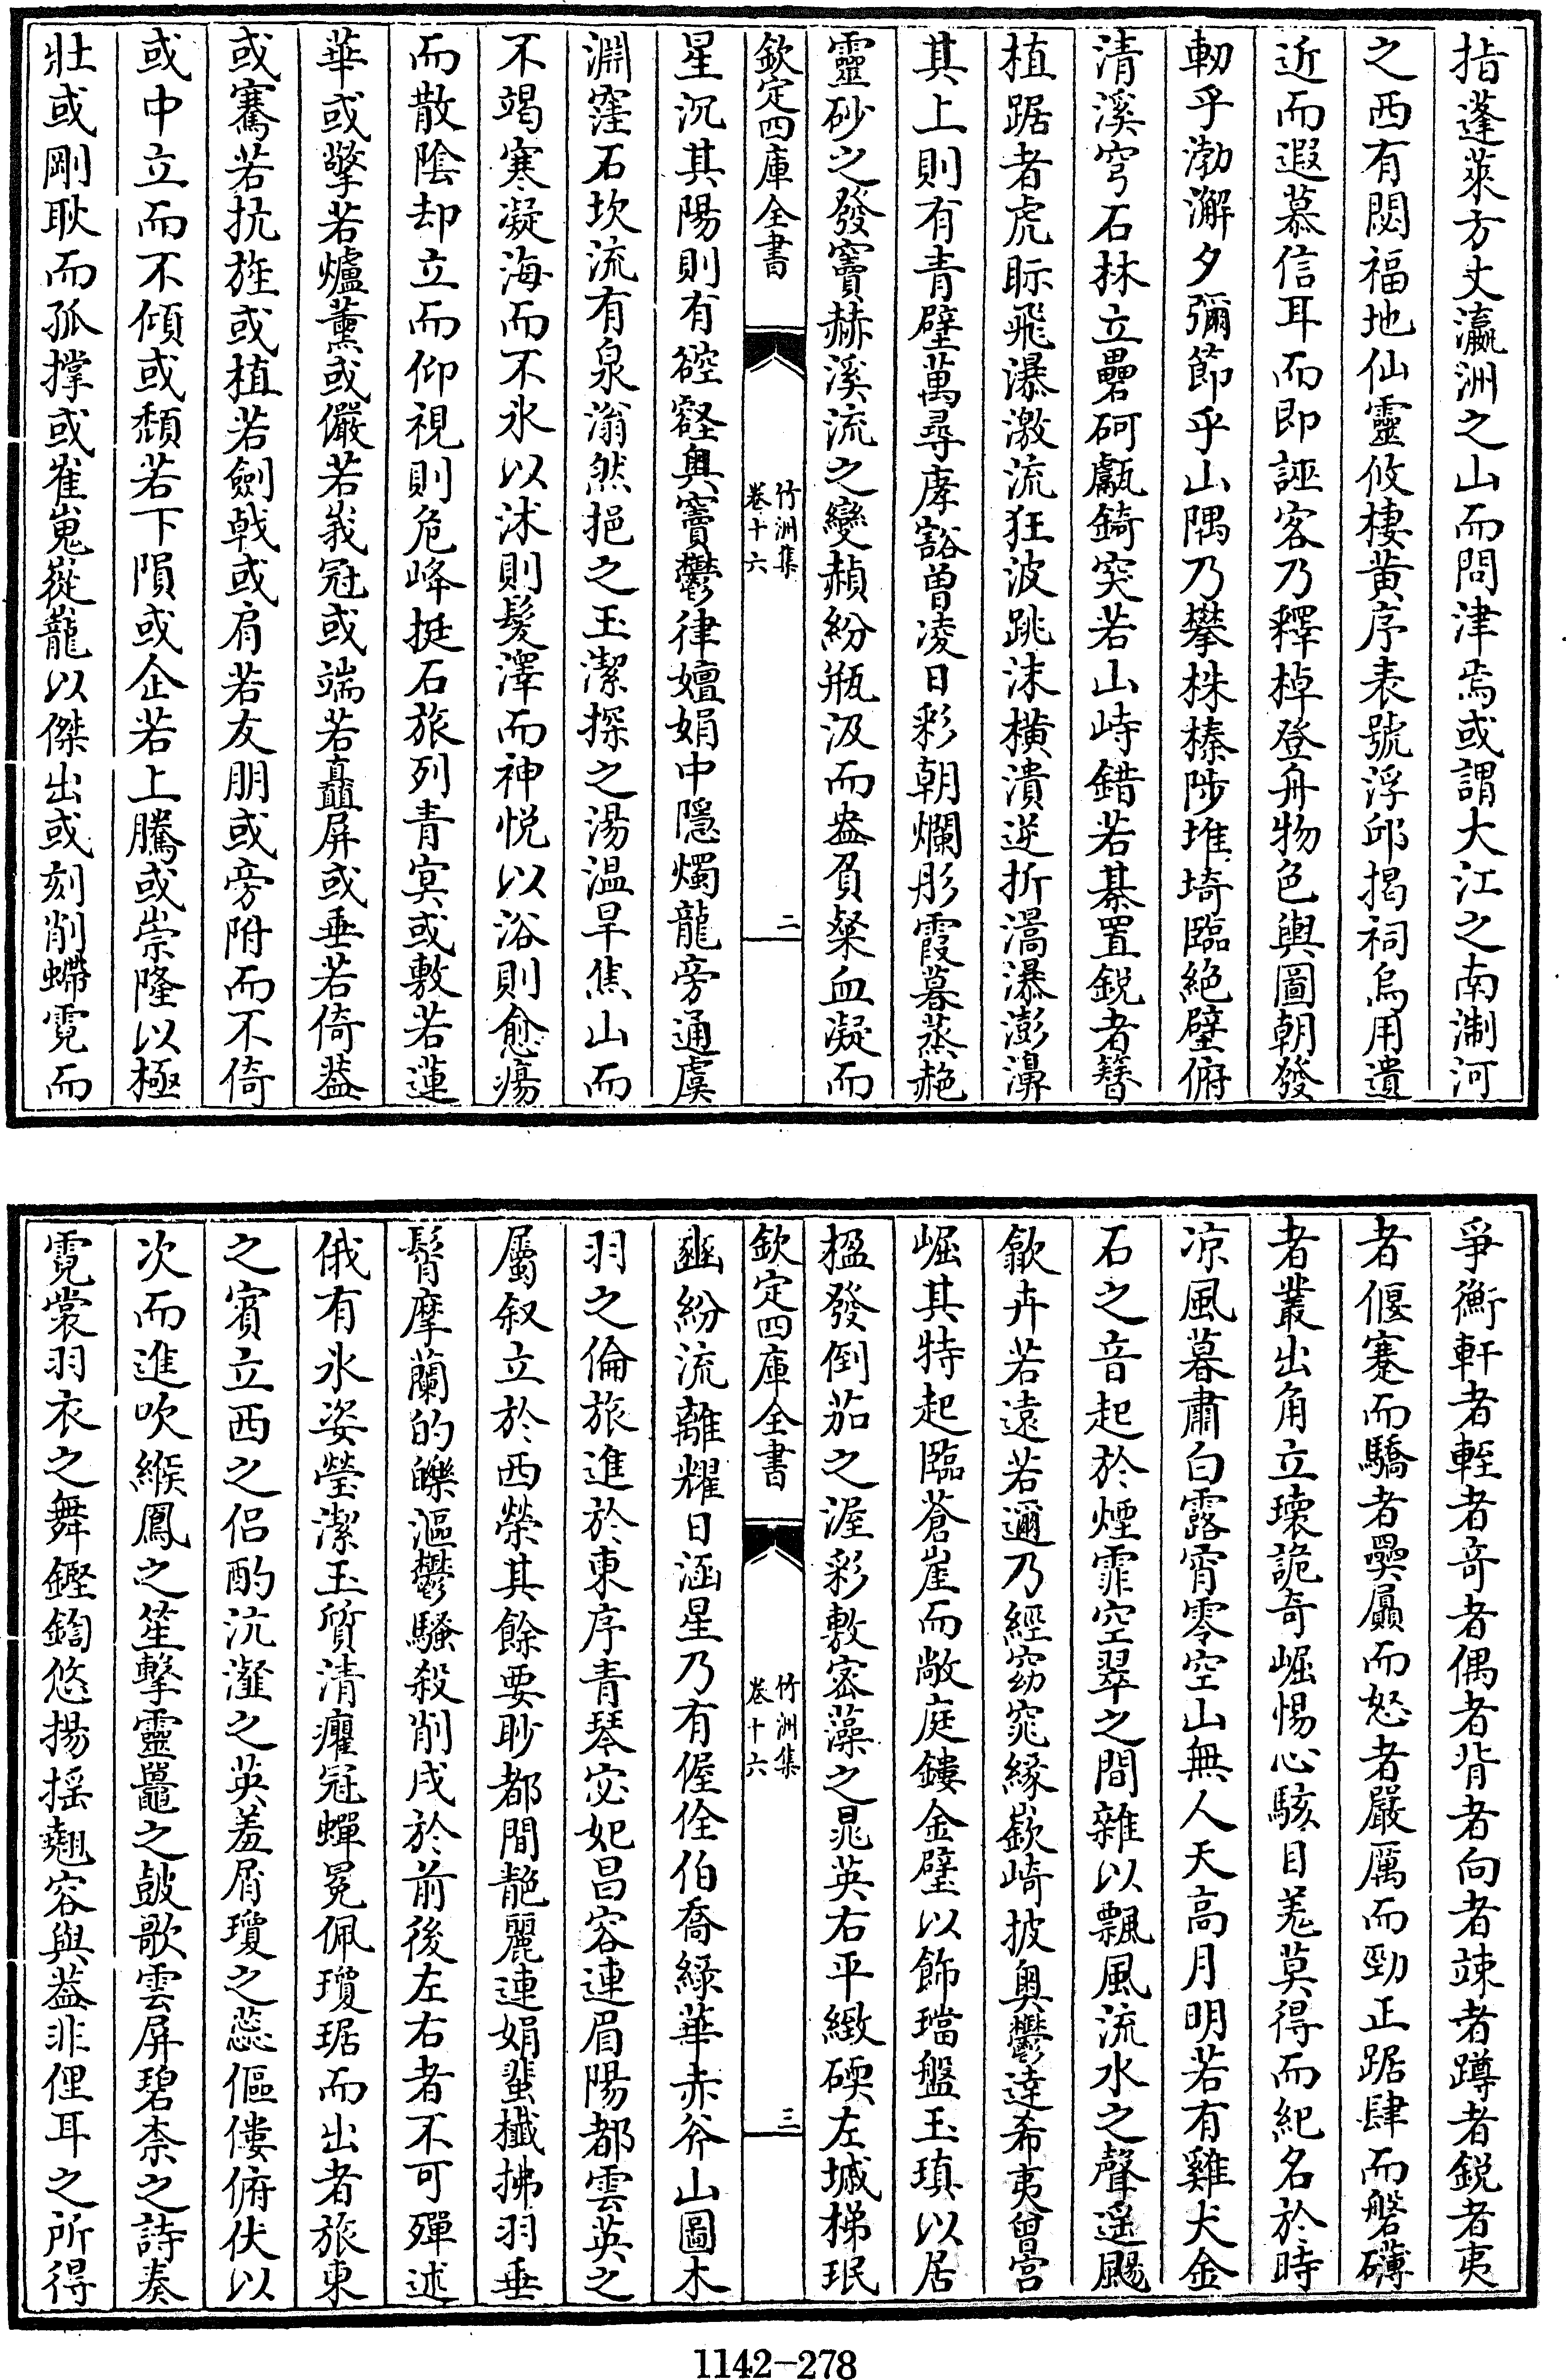 指蓬萊方丈瀛洲之山而問津焉或謂大江之南淛河
之西有閟福地仙靈攸棲黄序表號浮邱揭祠烏用遺
近而遐慕信耳而即誣客乃釋棹登舟物色輿圖朝發
軔乎渤澥夕彌節乎山隅乃攀株榛陟堆埼臨絶壁俯
清溪穹石林立礨砢甗錡突若山峙錯若棊置鋭者簪
植踞者虎眎飛瀑激流狂波跳沫横潰逆折滈瀑澎濞
其上則有青壁萬尋庨豁曽凌日彩朝爛彤霞暮蒸赩
靈砂之發竇赫溪流之變赬紛瓶汲而盎負粲血凝而
欽定四庫全書
竹洲集
卷十六
二
星沉其陽則有硿谾奥竇鬱律嬗娟中隱燭龍旁通虞
淵窪石坎流有泉滃然挹之玉潔探之湯温旱焦山而
不竭寒凝海而不氷以沐則髮澤而神悦以浴則愈瘍
而散陰却立而仰視則危峰挺石旅列青㝠或敷若蓮
華或擎若爐薰或儼若峩冠或端若矗屏或垂若倚葢
或騫若抗旌或植若劍戟或肩若友朋或旁附而不倚
或中立而不傾或頽若下隕或企若上騰或崇隆以極
壯或剛耿而孤撑或崔嵬嵸巃以傑出或刻削螮霓而
爭衡軒者輊者竒者偶者背者向者竦者蹲者鋭者夷
者偃蹇而驕者奰屭而怒者嚴厲而勁正踞肆而磐礴
者叢出角立瓌詭奇崛惕心駭目羌莫得而紀名於時
凉風暮肅白露宵零空山無人天高月明若有雞犬金
石之音起於煙霏空翠之間雜以飄風流水之聲遥颺
歙卉若遠若邇乃經窈窕緣嶔崎披奥鬱逹希夷曾宫
崛其特起臨蒼崖而敞庭鏤金璧以飾璫盤玉瑱以居
楹發倒茄之渥彩敷宻藻之晁英右平緻碝左墄梯珉
欽定四庫全書
竹洲集
卷十六
三
豳紛流離耀日涵星乃有偓佺伯喬緑華赤斧山圖木
羽之倫旅進於東序青琴宓妃昌容連眉陽都雲英之
屬叙立於西榮其餘要眇都間靘麗連娟蜚襳拂羽垂
髾摩蘭的皪漚鬱騷殺削戌於前後左右者不可殫述
俄有氷姿瑩潔玉質清癯冠蟬冕佩瓊琚而出者旅東
之賓立西之侣酌沆瀣之英羞屑瓊之蕊傴僂俯伏以
次而進吹緱鳳之笙擊靈鼉之皷歌雲屏碧柰之詩奏
霓裳羽衣之舞鏗鍧悠揚摇翹容與葢非俚耳之所得
1142-278